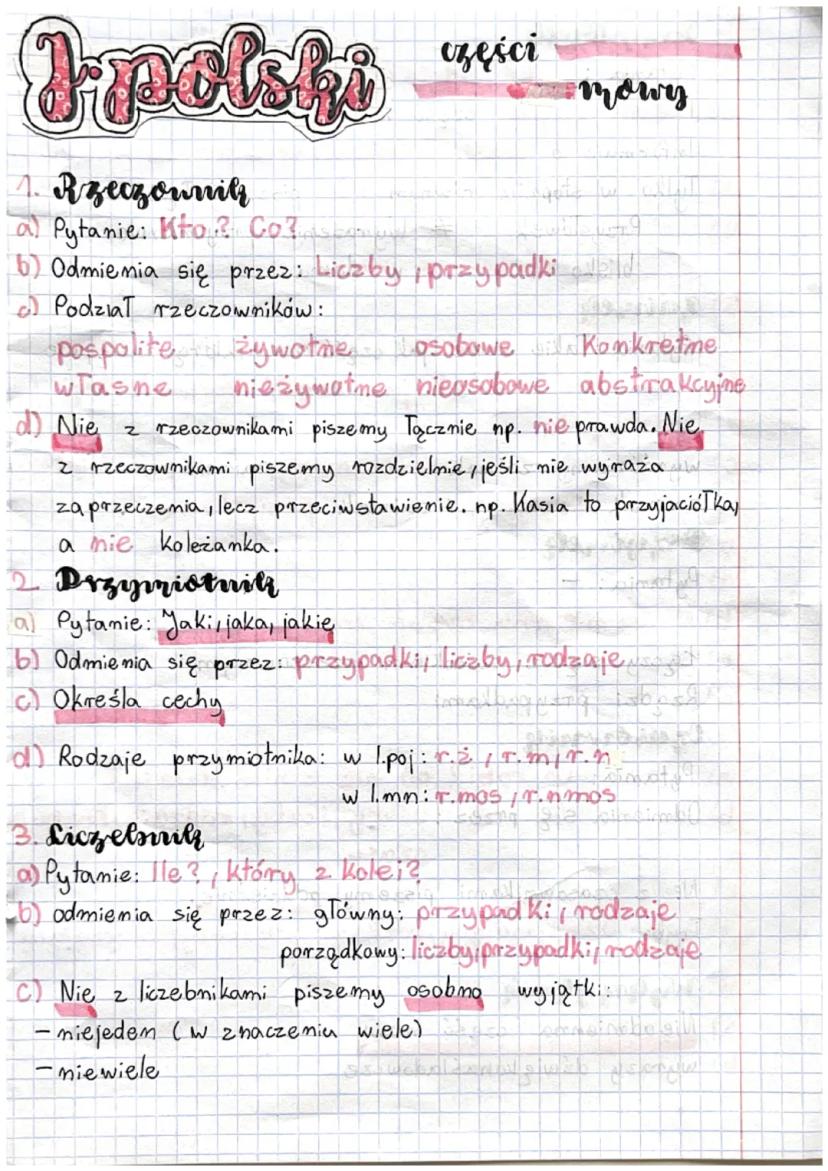 J. polski
części
mowy
1. Rzeczownik
a) Pytanie: Kto? Co?
b) Odmienia się przez: Liczby, przypadki
c) Podział rzeczowników:
pospolite żywotne osobowe Konkretne
własne nieżywotne nieosobowe abstrakcyjne
d) Nie z rzeczownikami piszemy łącznie np. nieprawda. Nie
z rzeczownikami piszemy rozdzielnie, jeśli nie wyraża
zaprzeczenia, lecz przeciwstawienie. np. Kasia to przyjaciółka,
a nie koleżanka.
2. Przymiotnik
a) Pytanie: Jaki, jaka, jakie
b) Odmienia się przez: przypadki, liczby, rodzaje
c) Określa cechy
d) Rodzaje przymiotnika: w l.poj: r.ż, r.m, r.n
w l.mn: r.mos, r.nmos
3. Liczebnik
a) Pytanie: Ile?, który z kolei?
b) odmienia się przez: główny: przypadki, rodzaje
porządkowy: liczby, przypadki, rodzaje
c) Nie z liczebnikami piszemy osobno wyjątki:
- niejeden (w znaczeniu wiele)
- niewiele